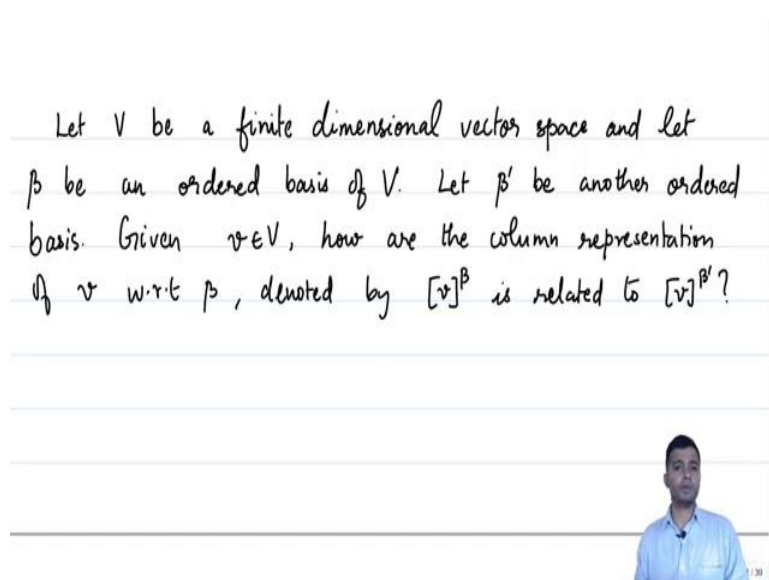 Let V be a finite dimensional vector space and let
β be an ordered basis of V. Let β' be another ordered
basis. Given v ∈ V, how are the column representation
of v w.r.t β, denoted by [v]^β is related to [v]^β'?